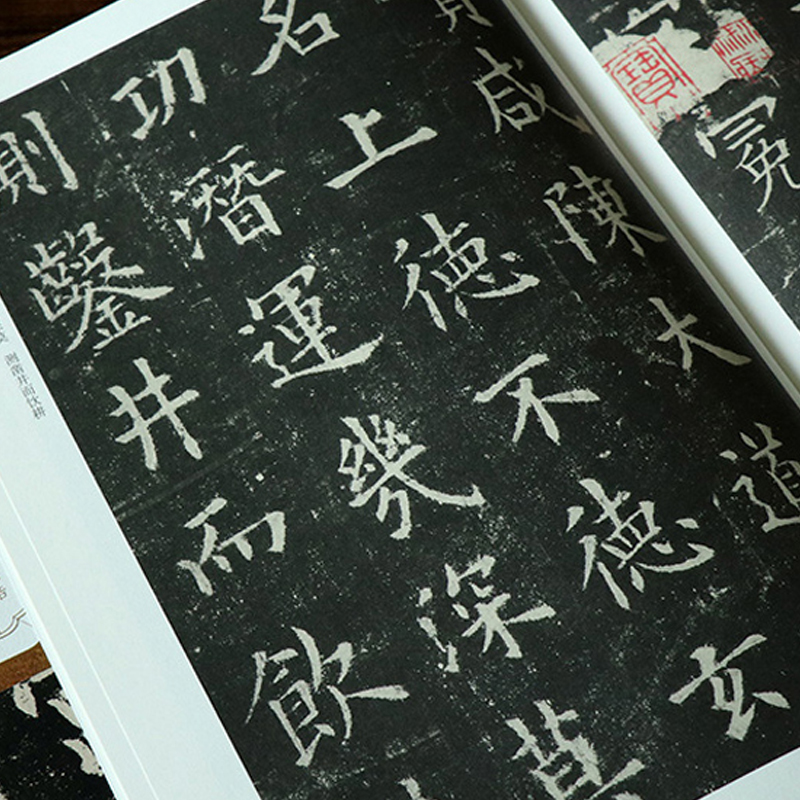 冕
寶
咸陳大道
名上德不德玄
功潛運幾深莫
則鑿井而飲
测凿井而饮耕